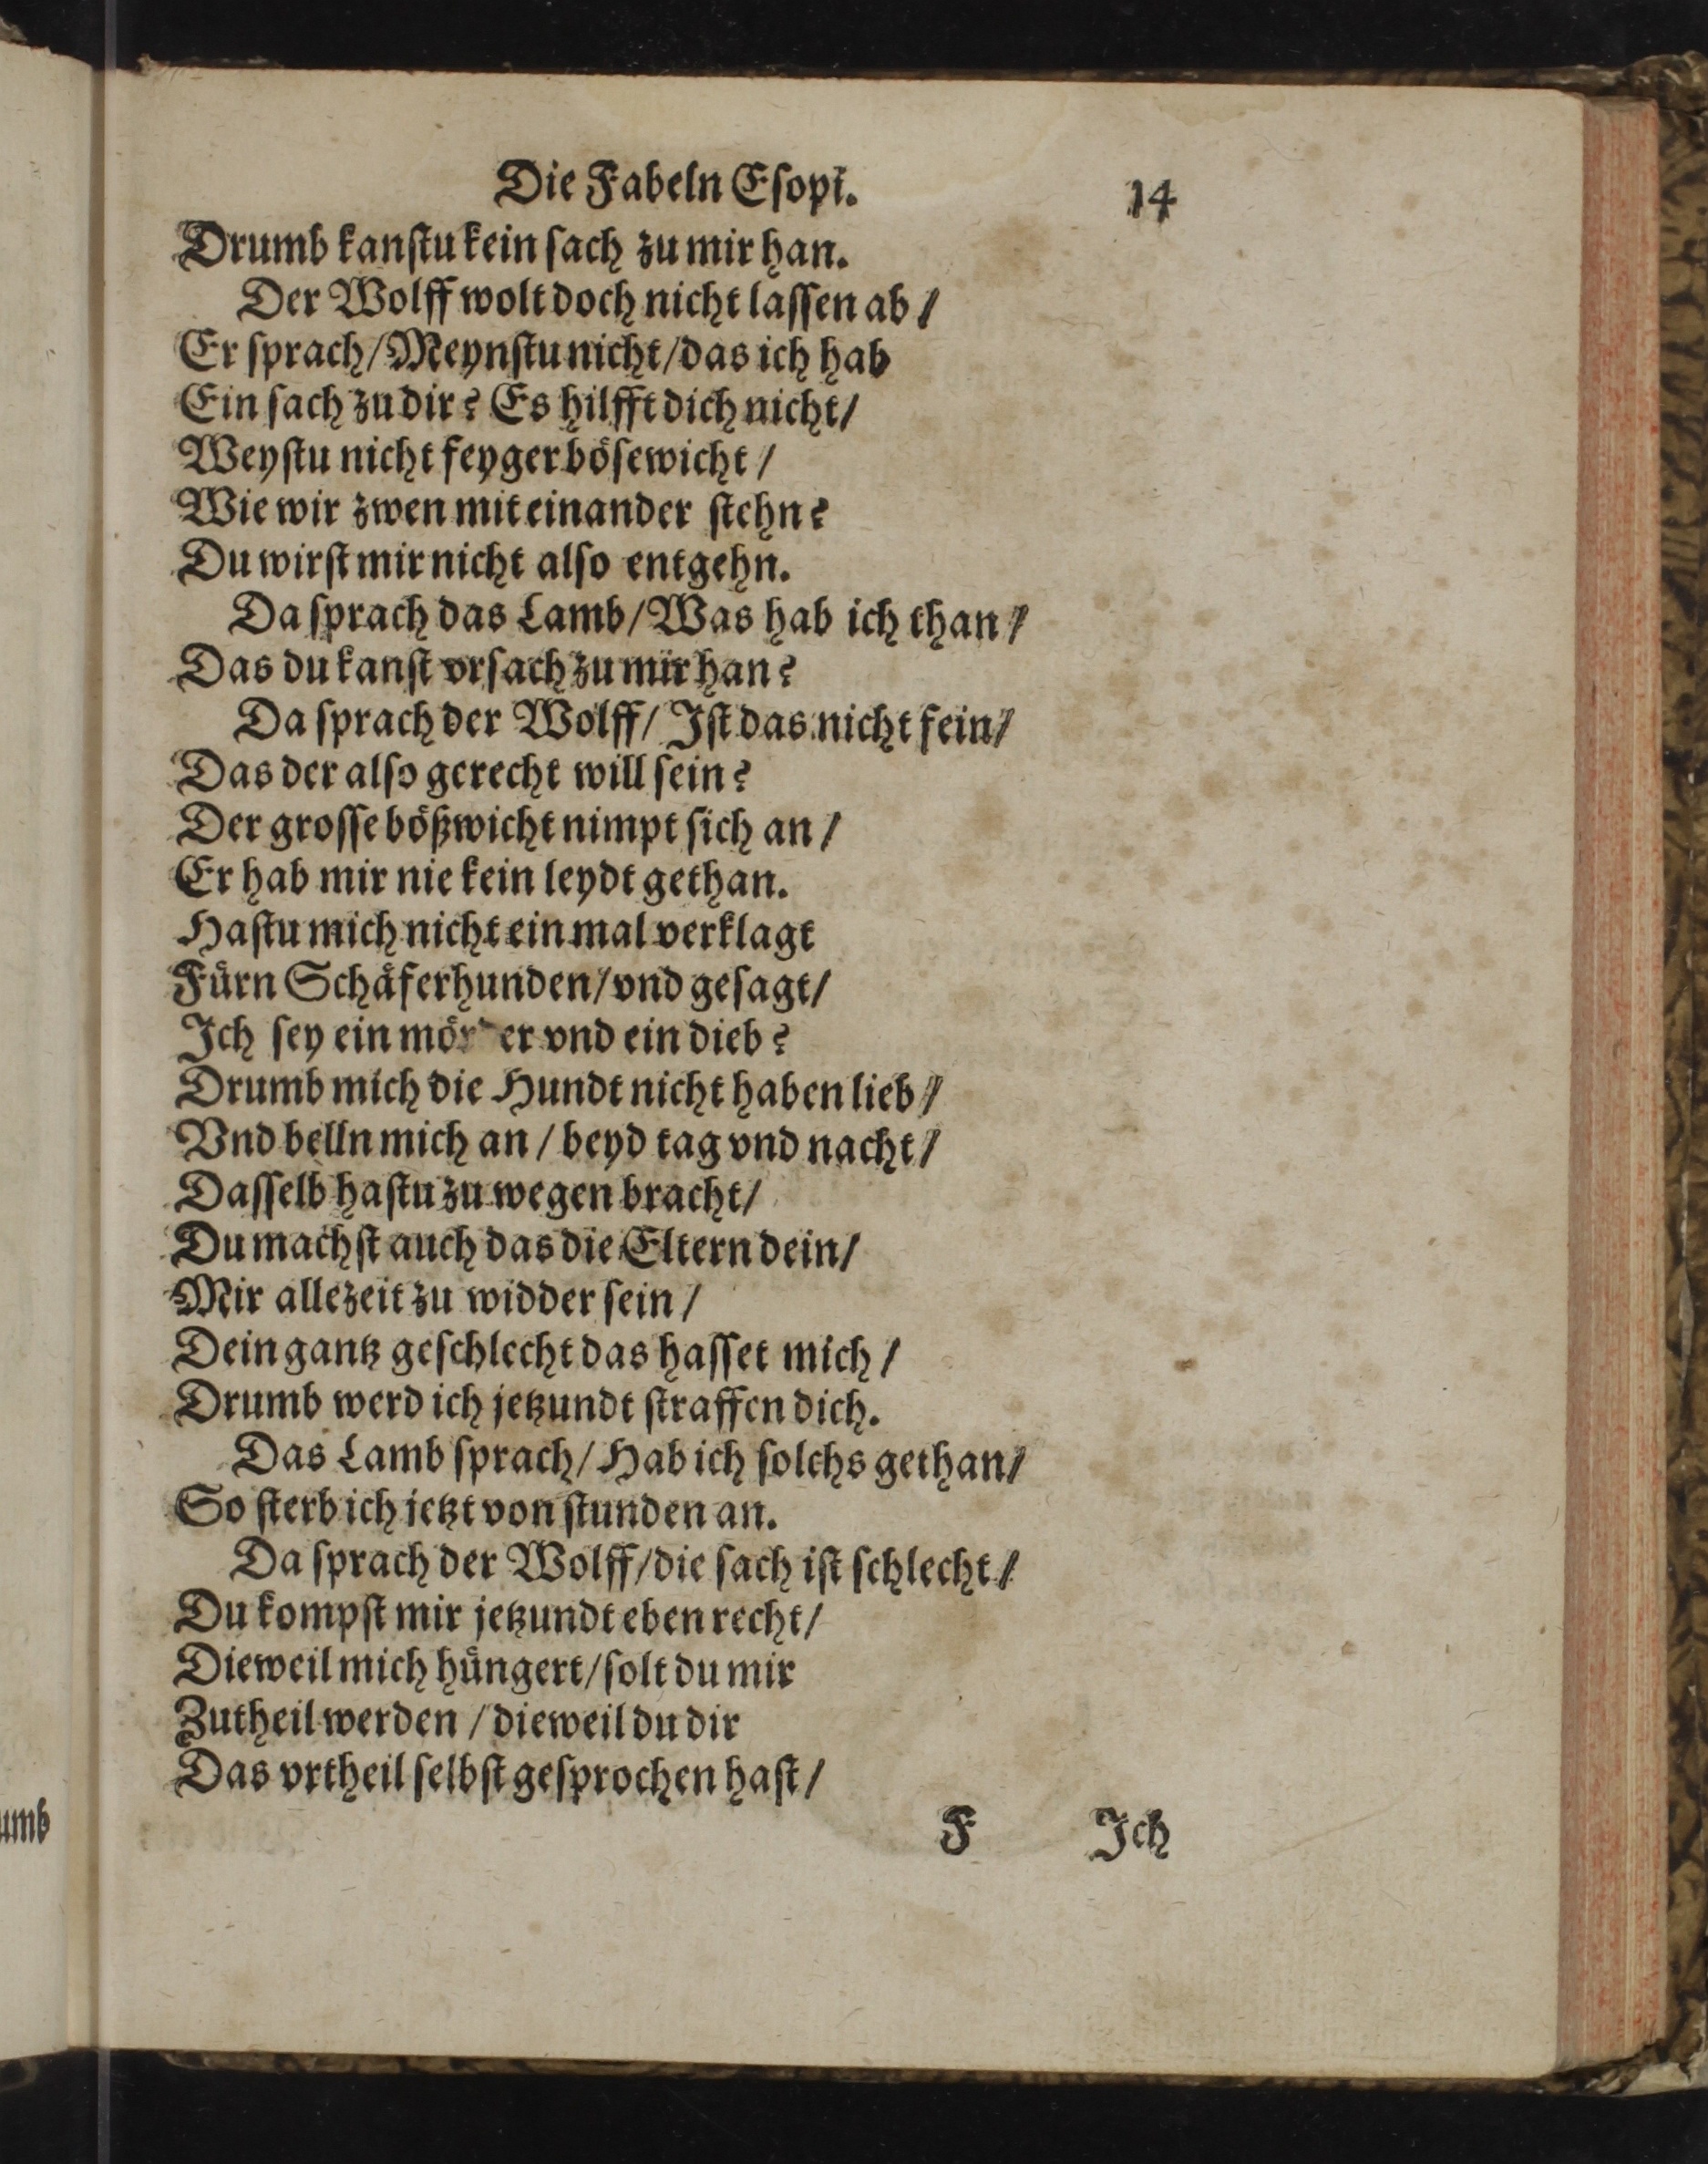 Die Fabeln Esopi. 14
Drumb kanstu kein sach zu mir han.
Der Wolff wolt doch nicht lassen ab /
Er sprach / Meynstu nicht / das ich hab
Ein sach zu dir? Es hilfft dich nicht /
Weystu nicht feyger bösewicht /
Wie wir zwen mit einander stehn?
Du wirst mir nicht also entgehn.
Da sprach das Lamb / Was hab ich than /
Das du kanst vrsach zu mir han?
Da sprach der Wolff / Ist das nicht fein /
Das der also gerecht will sein?
Der grosse bößwicht nimpt sich an /
Er hab mir nie kein leydt gethan.
Hastu mich nicht ein mal verklagt
Fürn Schäferhunden / vnd gesagt /
Ich sey ein mörder vnd ein dieb?
Drumb mich die Hundt nicht haben lieb /
Vnd belln mich an / beyd tag vnd nacht /
Dasselb hastu zu wegen bracht /
Du machst auch das die Eltern dein /
Mir allezeit zu widder sein /
Dein gantz geschlecht das hasset mich /
Drumb werd ich jetzundt straffen dich.
Das Lamb sprach / Hab ich solchs gethan /
So sterb ich jetzt von stunden an.
Da sprach der Wolff / die sach ist schlecht /
Du kompst mir jetzundt eben recht /
Dieweil mich hüngert / solt du mir
Zutheil werden / dieweil du dir
Das vrtheil selbst gesprochen hast /
F Ich
umb